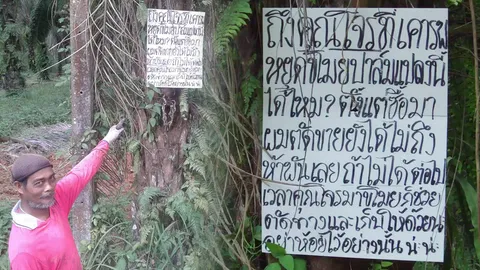 ถึงคุณโจรที่เคารพ
หยุดขโมยปาล์มแปลงนี้
ได้ไหม? ตั้งแต่ซื้อมา
ผมตัดขายยังได้ไม่ถึง
ห้าพันเลย ถ้าไม่ได้ ต่อไป
เวลาคุณโจรมาขโมยก็ช่วย
ตัดทางและเก็บให้ด้วยนะ
อย่าห้อยไว้อย่างนั้น น่ะ น่ะ